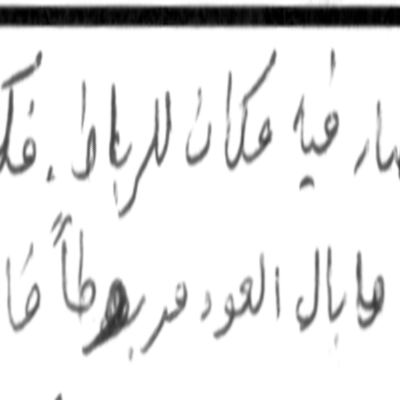 فيه مكان للرباط.
ما بال العود مربوطاً